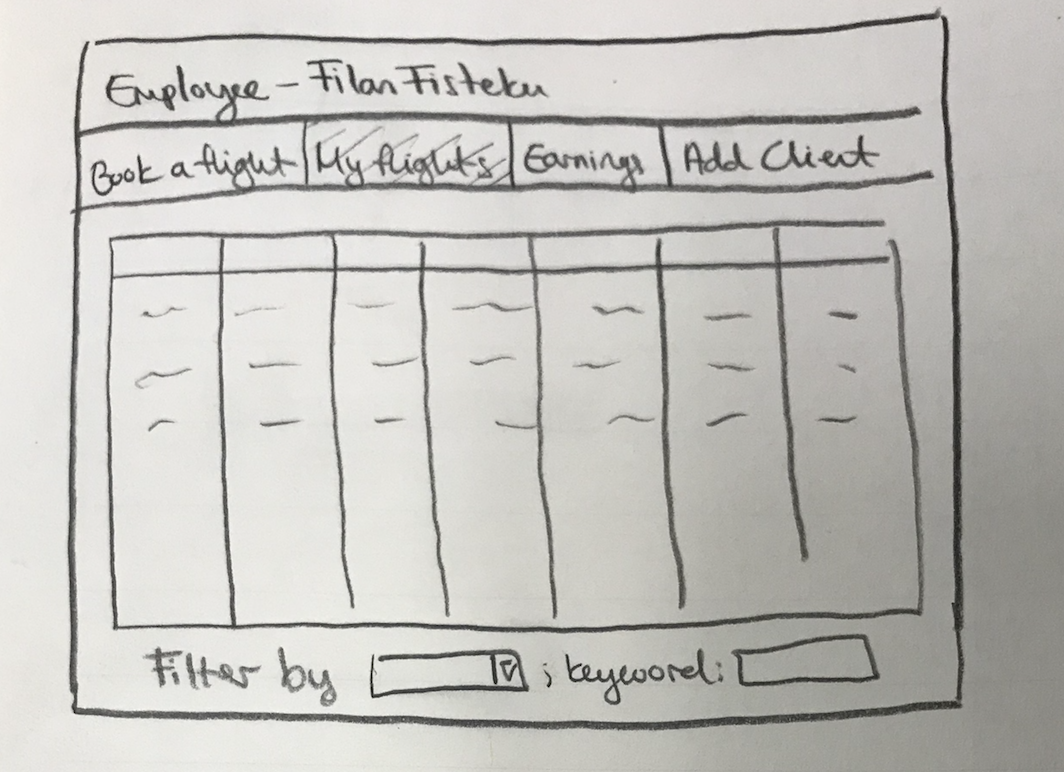 Employee - Filan Fisteku
Book a flight My flights Earnings Add Client
Filter by ; keyword: